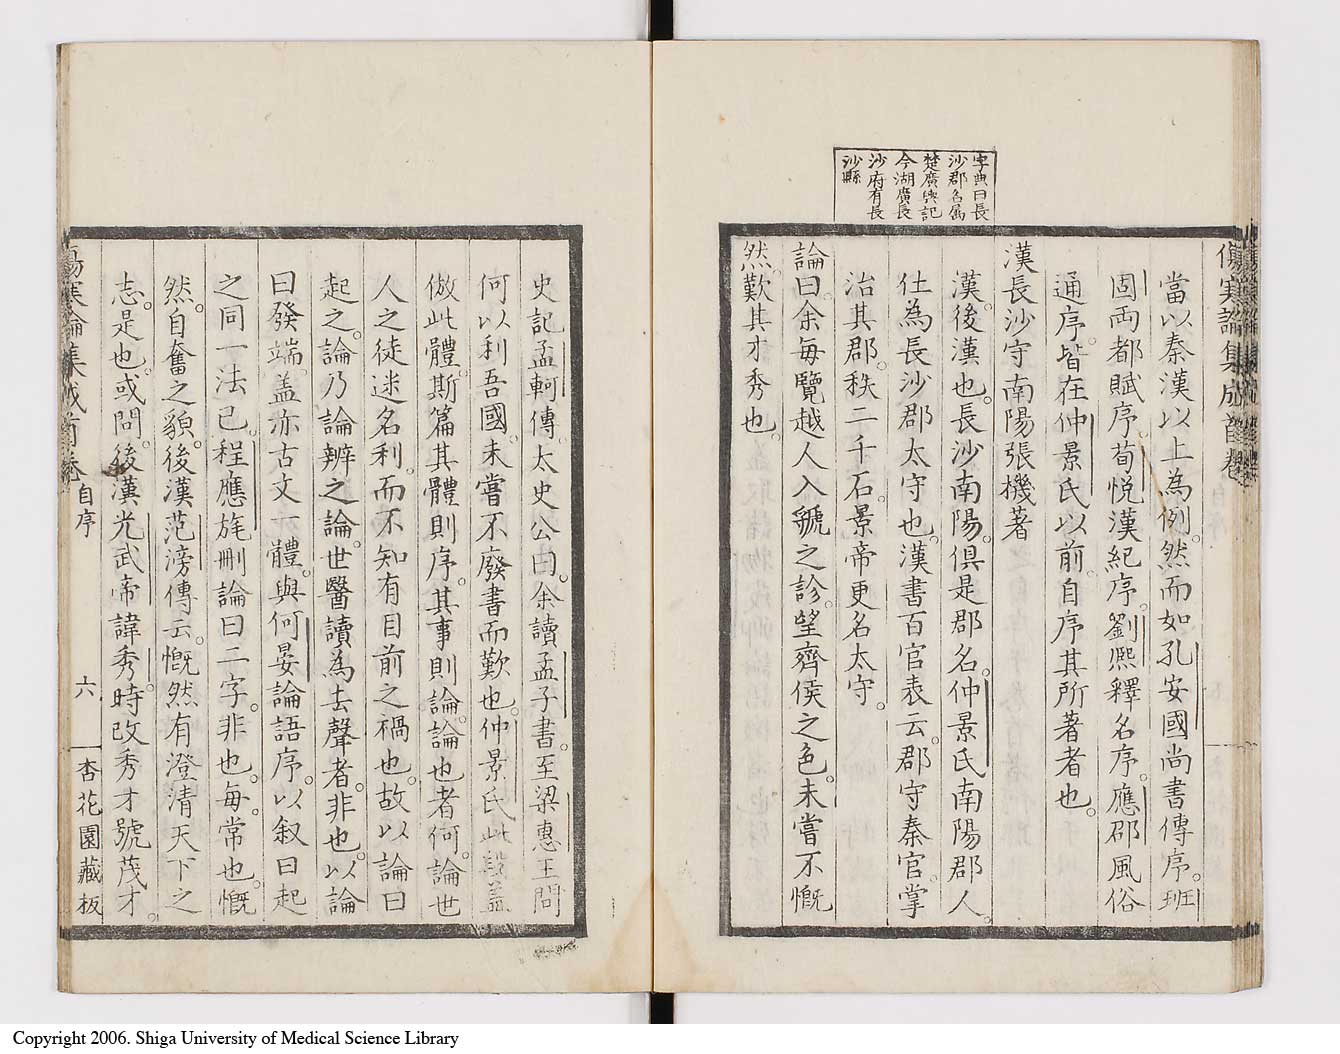 傷寒論集成首卷
字典曰長
沙郡名属
楚廣輿記
今湖廣長
沙府有長
沙縣
當以秦漢以上為例。然而如孔安國尚書傳序。班
固両都賦序。荀悦漢紀序。劉熙釋名序。應邵風俗
通序。皆在仲景氏以前。自序其所著者也。
漢長沙守南陽張機著
漢。後漢也。長沙南陽。俱是郡名。仲景氏南陽郡人。
仕為長沙郡太守也。漢書百官表云。郡守秦官。掌
治其郡。秩二千石。景帝更名太守。
論曰。余每覽越人入虢之診。望齊侯之色。未嘗不慨
然。歎其才秀也。
史記孟軻傳。太史公曰。余讀孟子書。至梁惠王問
何以利吾國。未嘗不廢書而歎也。仲景氏此段盖
倣此體。斯篇其體則序。其事則論。論也者何。論世
人之徒迷名利。而不知有目前之禍也。故以論曰
起之。論乃論辨之論。世醫讀為去聲者。非也。以論
曰發端。盖亦古文一體。與何晏論語序。以叙曰起
之同一法已。程應旄刪論曰二字。非也。每。常也。慨
然。自奮之貌。後漢范滂傳云。慨然有澄清天下之
志。是也。或問。後漢光武帝諱秀。時改秀才號茂才。
傷寒論集成首卷 自序 六 杏花園藏板
Copyright 2006. Shiga University of Medical Science Library